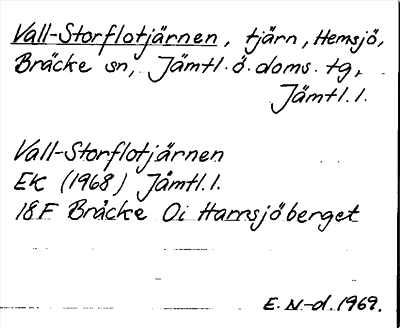 Vall-Storflotjärnen, tjärn, Hemsjö,
Bräcke sn, Jämtl. ö. doms. tg,
Jämtl. l.
Vall-Storflotjärnen
EK (1968) Jämtl. l.
18F Bräcke 0i Hamsjöberget
E. N-d. 1969.